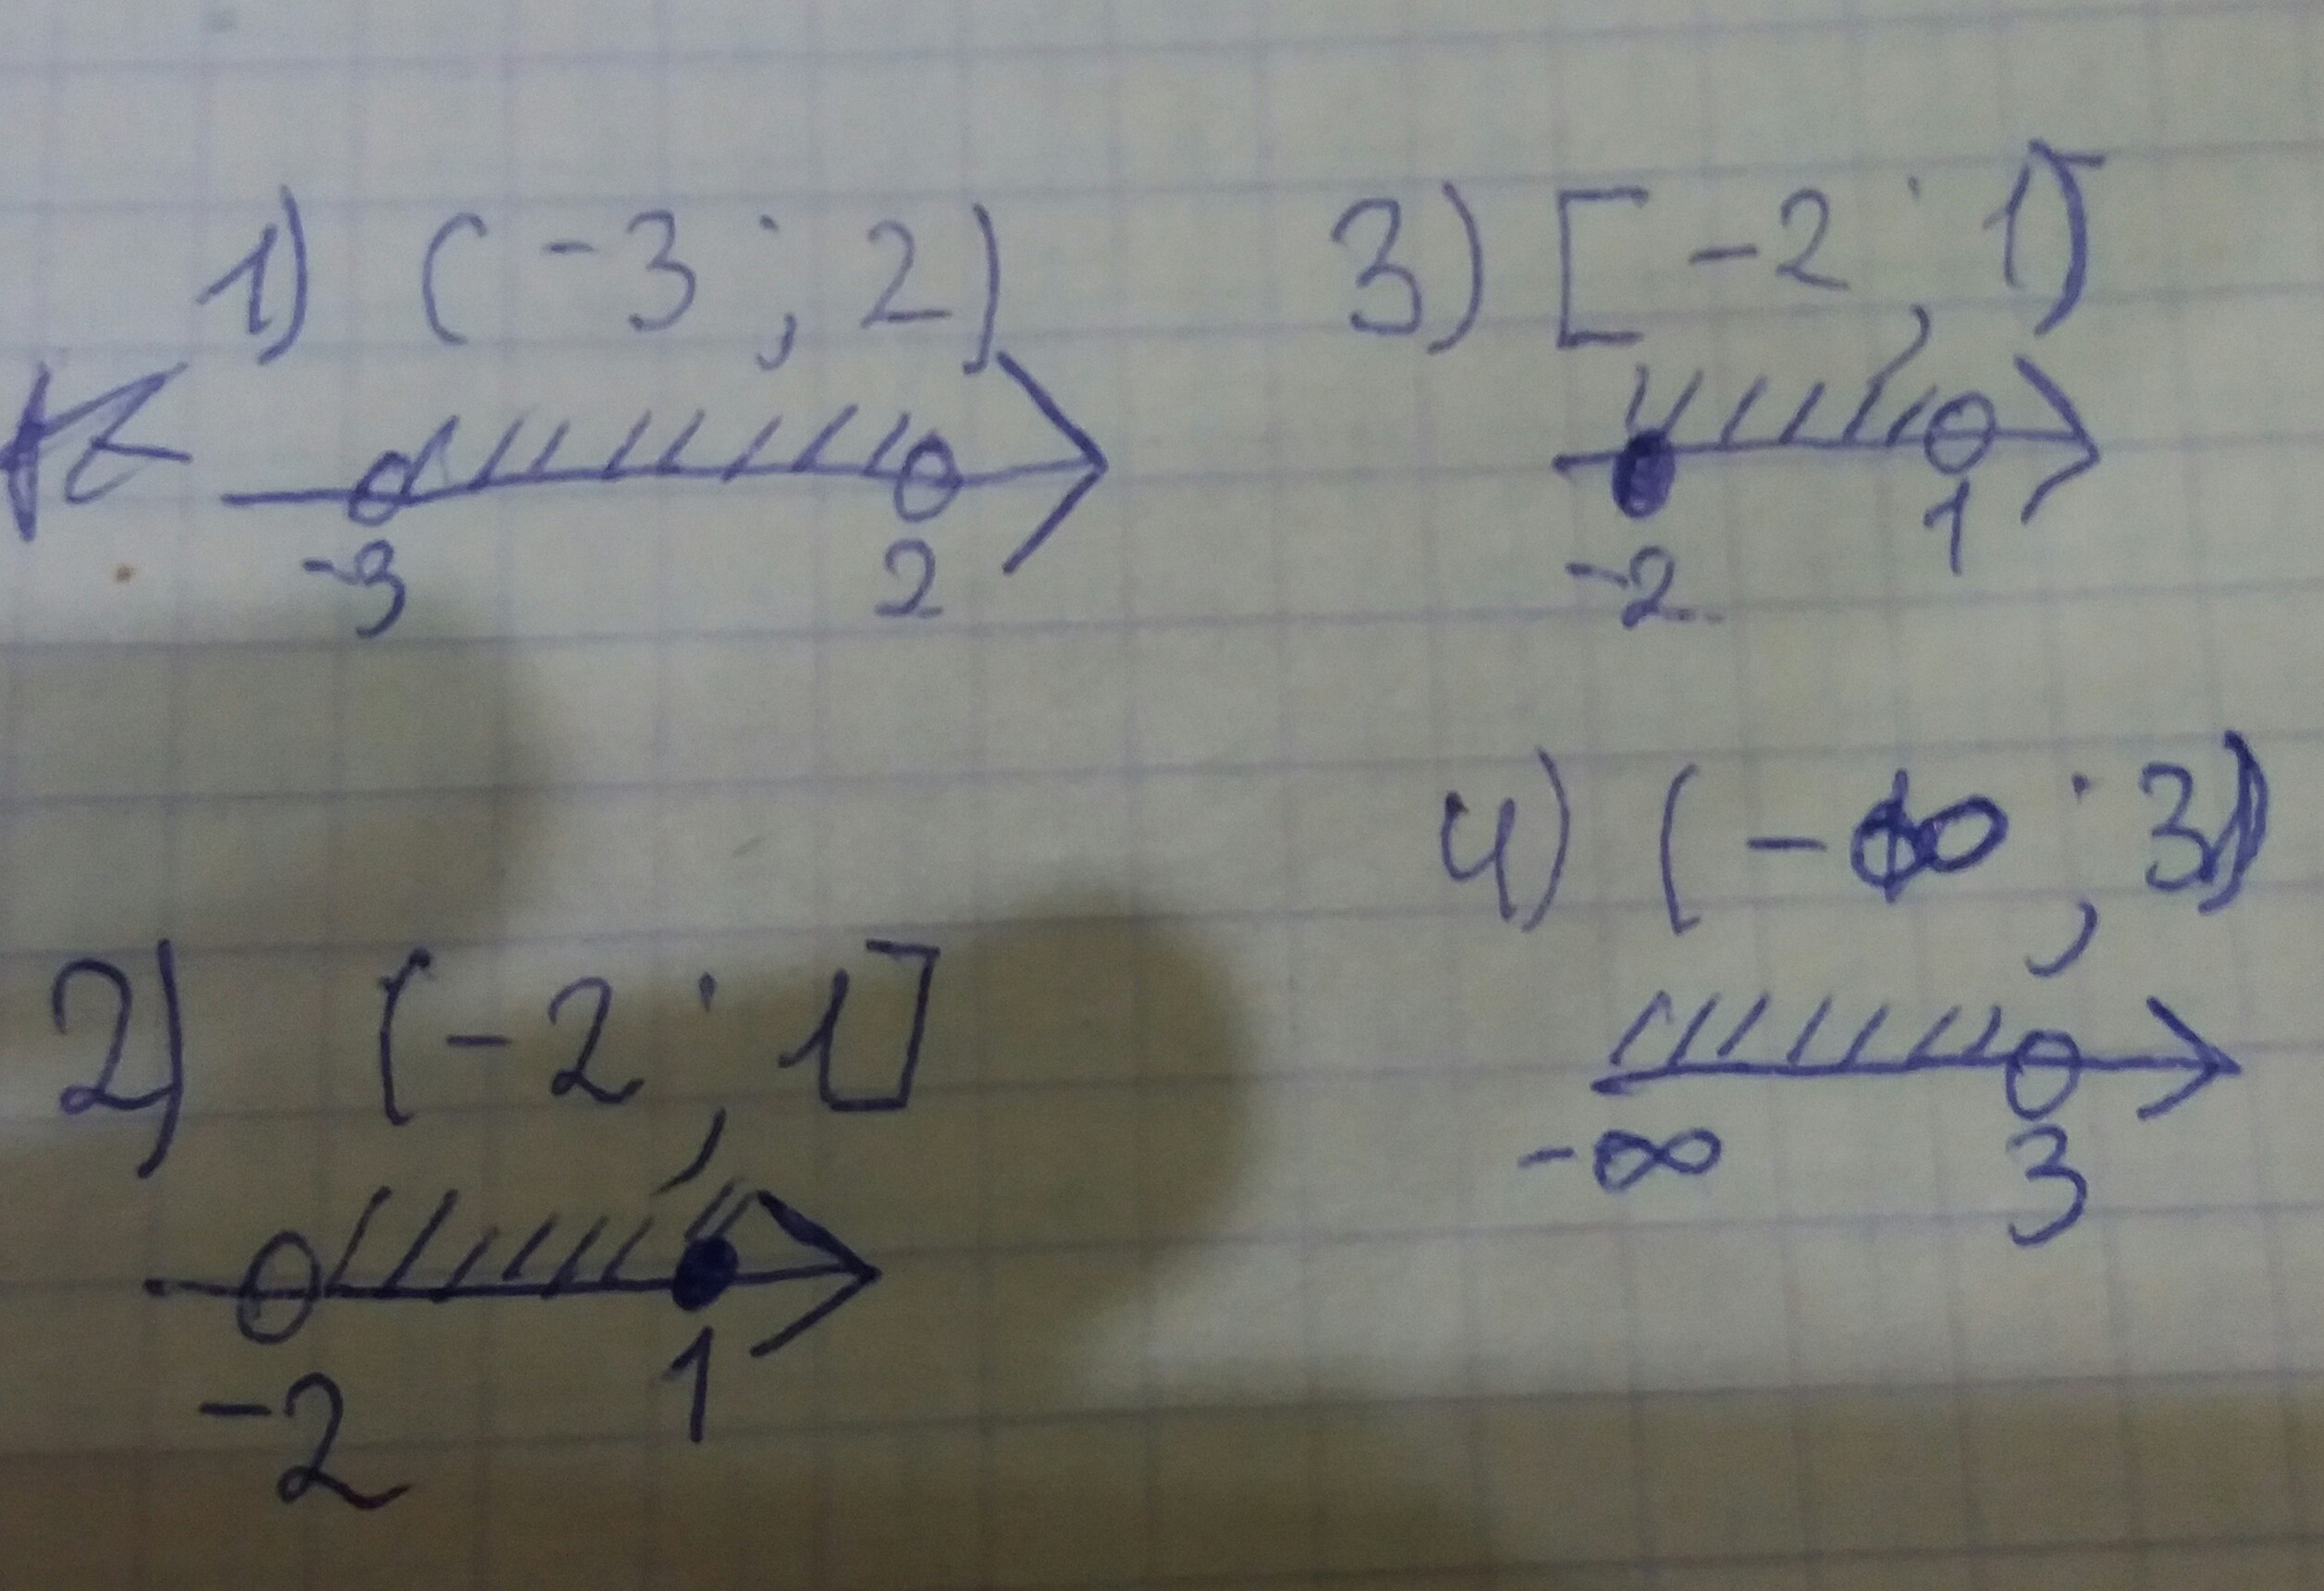 1) (-3 ; 2)
-3 2
2) (-2 ; 1]
-2 1
3) [-2 ; 1)
-2 1
4) (-∞ ; 3)
-∞ 3